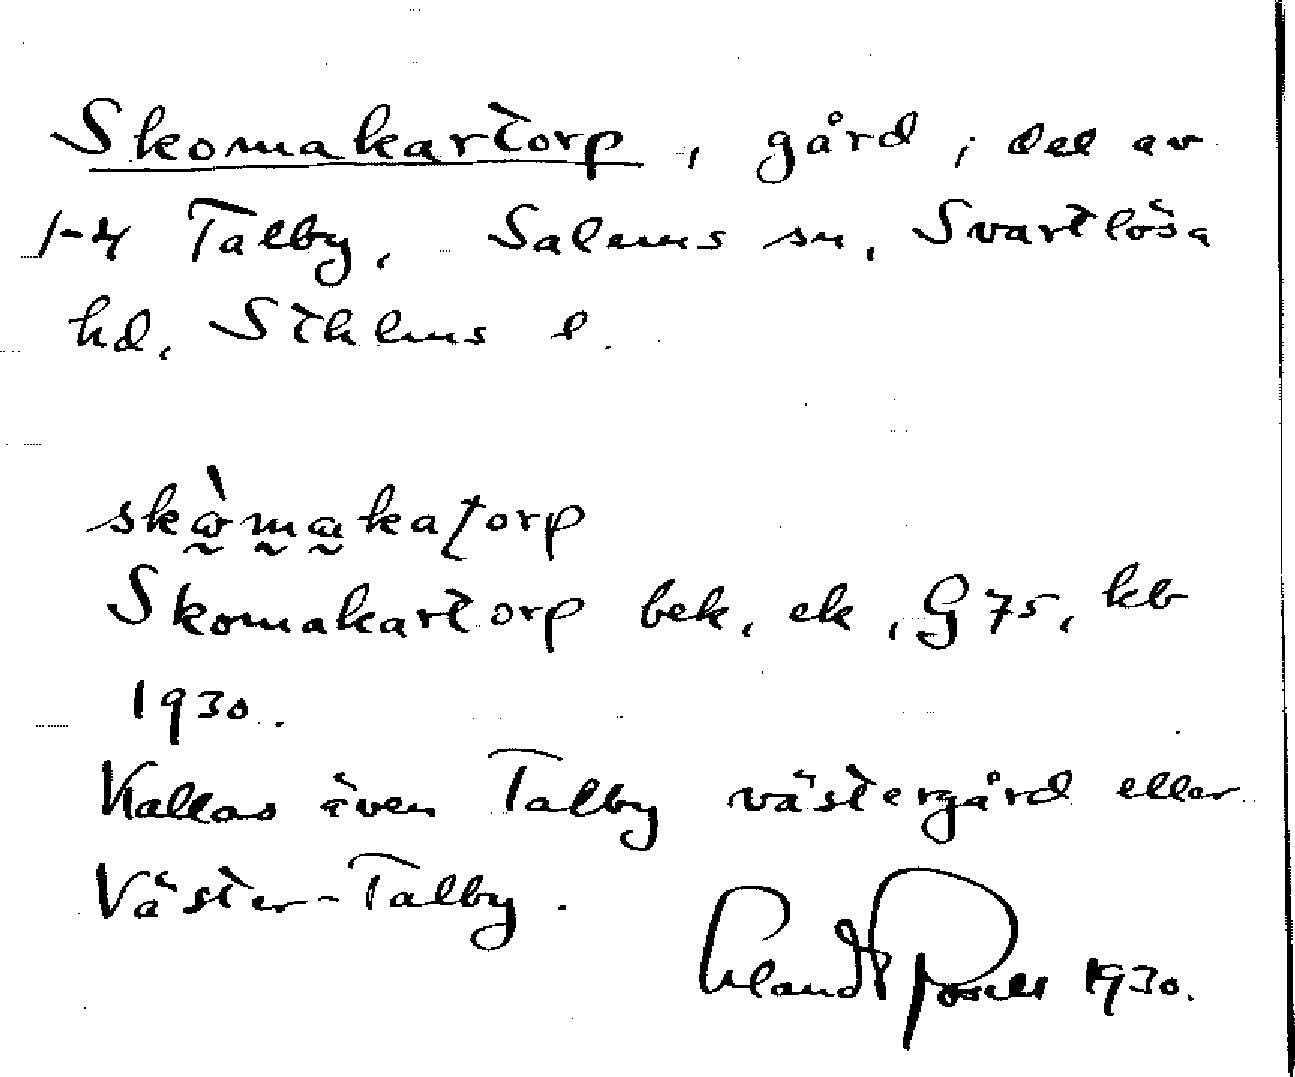 Skomakartorp, gård, del av
1-4 Talby, Salems sn, Svartlösa
hd, Sthlms l.
skòmakaʈorp
Skomakartorp bek, ek, G 75, kb
1930.
Kallas även Talby västergård eller
Väster-Talby.
1930.